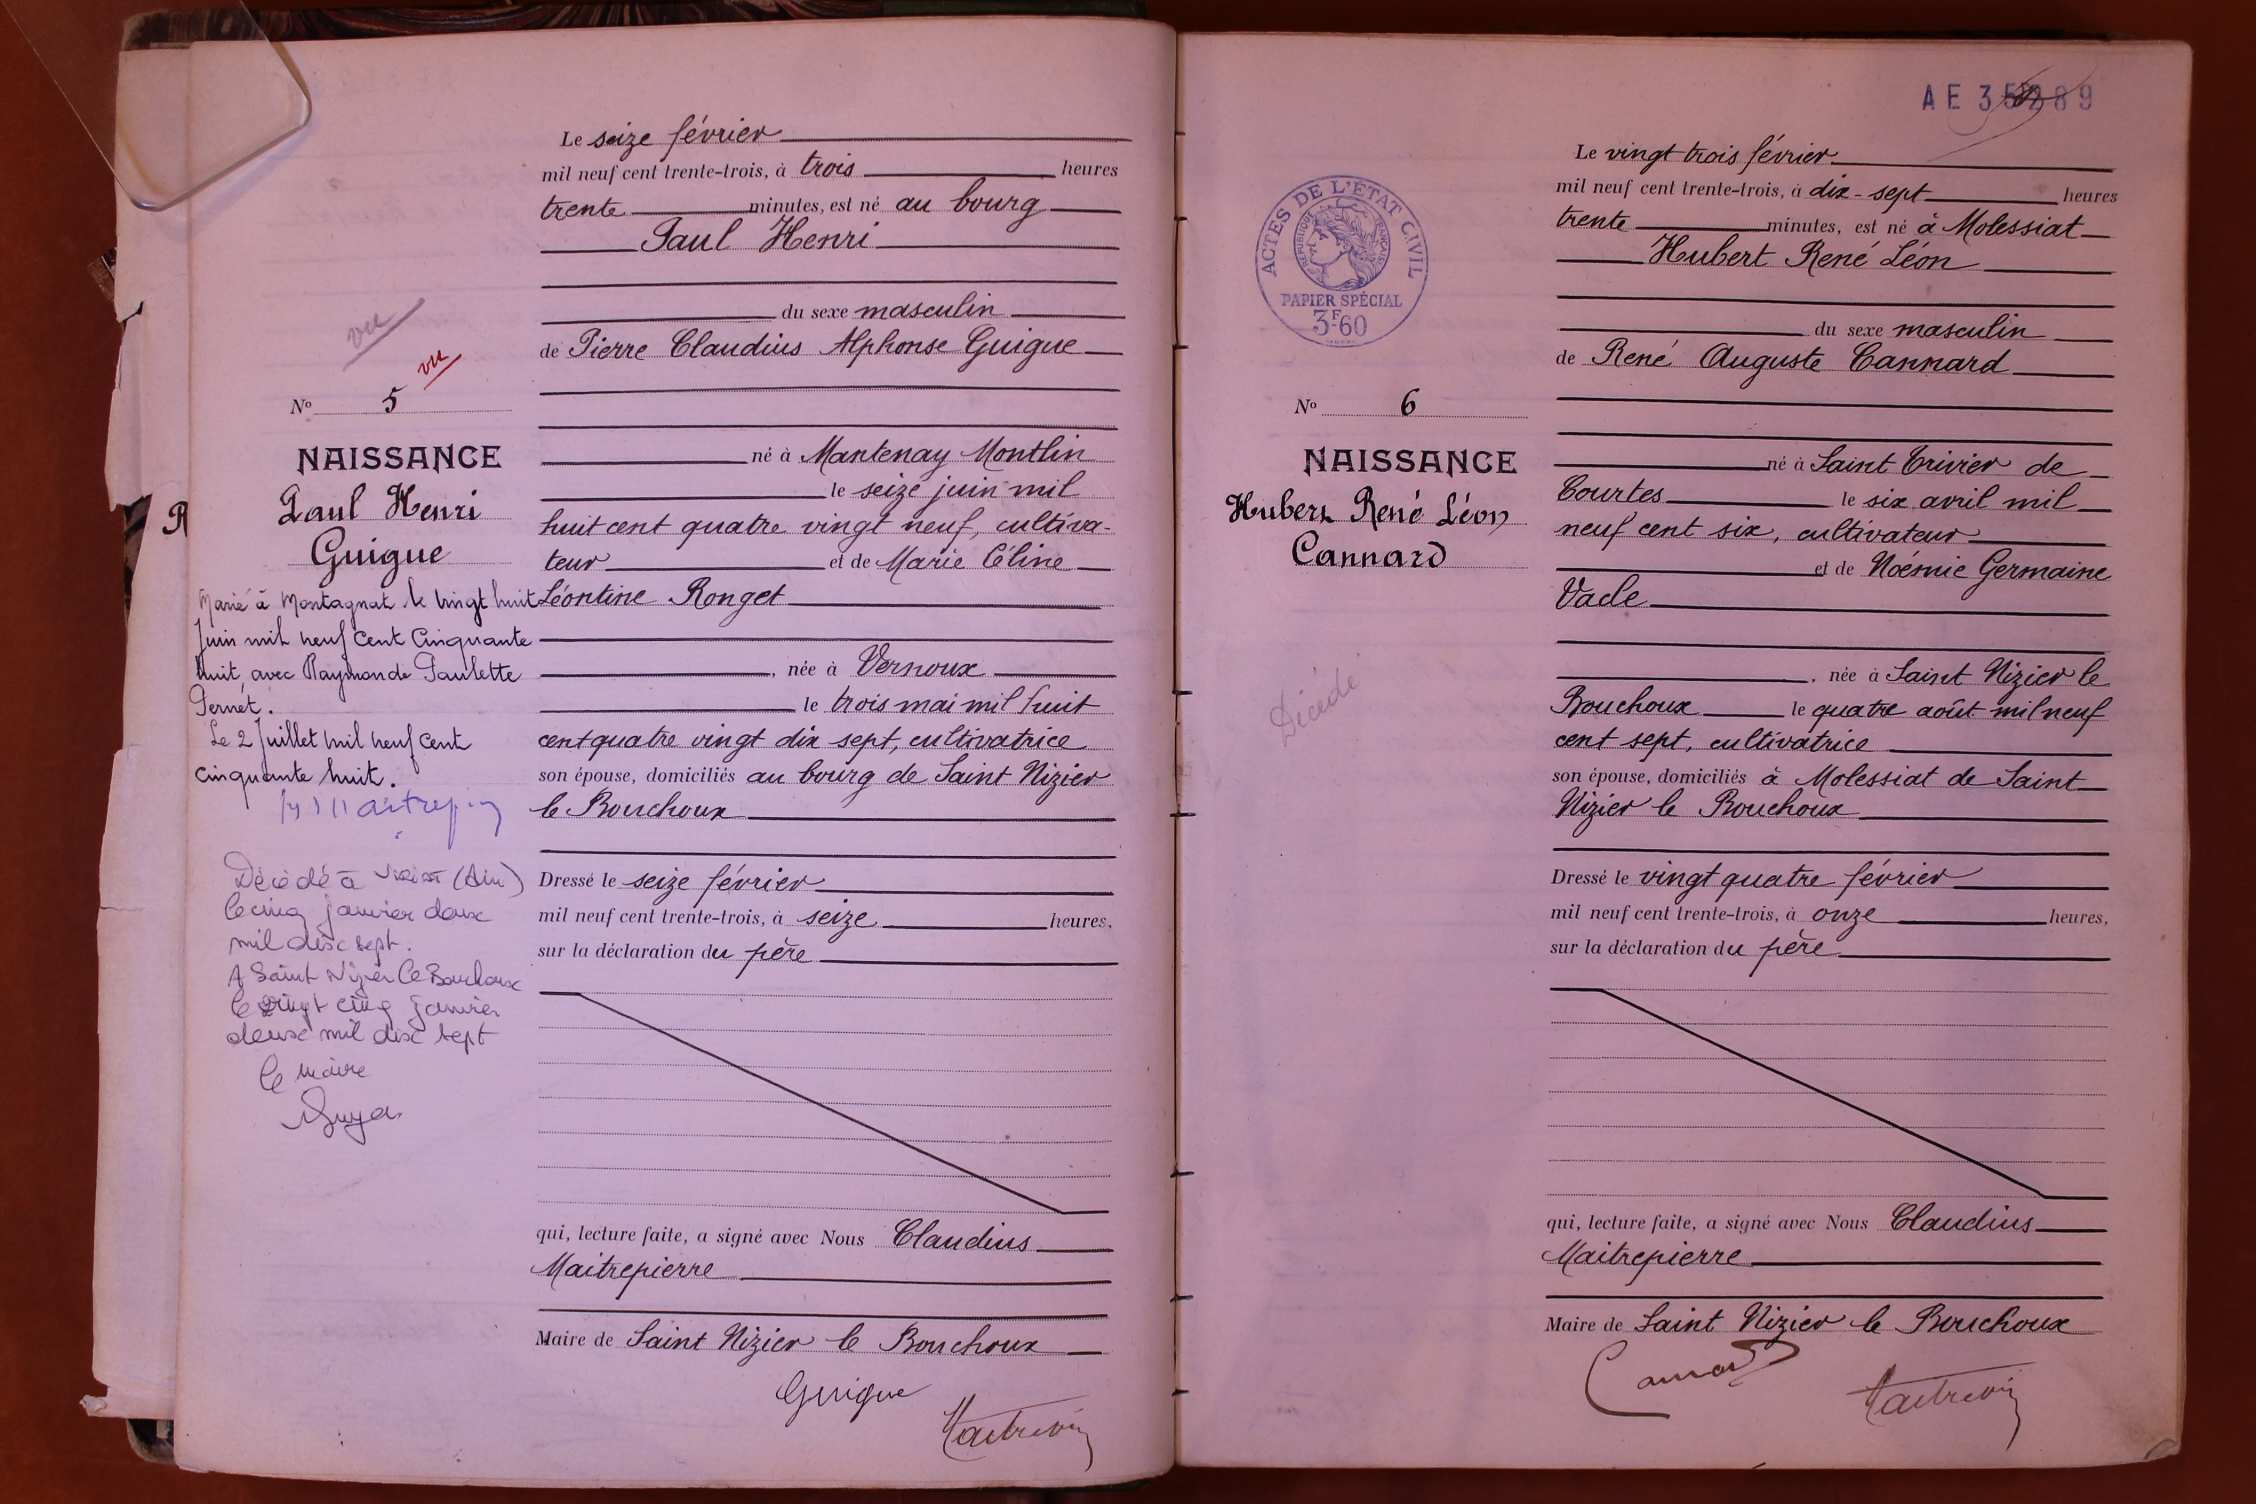 Le seize février
mil neuf cent trente-trois, à trois heures
trente minutes, est né au bourg
Paul Henri
du sexe masculin
de Pierre Claudius Alphonse Guigue
né à Mantenay Montlin
le seize juin mil
huit cent quatre vingt neuf, cultiva-
teur et de Marie Céline
Léontine Ronget
, née à Vernoux
le trois mai mil huit
cent quatre vingt dix sept, cultivatrice
son épouse, domiciliés au bourg de Saint Nizier
le Bouchoux
Dressé le seize février
mil neuf cent trente-trois, à seize heures,
sur la déclaration du père
qui, lecture faite, a signé avec Nous Claudius
Maitrepierre
Maire de Saint Nizier le Bouchoux
Guigue
vu
vu
No 5
NAISSANCE
Paul Henri
Guigue
R
Marié à Montagnat le vingt huit
Juin mil neuf cent cinquante
huit, avec Raymonde Paulette
Pernet.
Le 2 Juillet mil neuf cent
cinquante huit.
Décédé à (Ain)
le cinq janvier deux
mil dix sept.
A Saint Nizier le Bouchoux
le vingt cinq janvier
deux mil dix sept
Le Maire
AE 35289
ACTES DE L'ETAT CIVIL
REPUBLIQUE FRANÇAISE
PAPIER SPÉCIAL
3F60
No 6
NAISSANCE
Hubert René Léon
Cannard
Décédé
Le vingt trois février
mil neuf cent trente-trois, à dix-sept heures
trente minutes, est né à Molessiat
Hubert René Léon
du sexe masculin
de René Auguste Cannard
né à Saint Trivier de
Courtes le six avril mil
neuf cent six, cultivateur
et de Noémie Germaine
Vacle
, née à Saint Nizier le
Bouchoux le quatre août mil neuf
cent sept, cultivatrice
son épouse, domiciliés à Molessiat de Saint
Nizier le Bouchoux
Dressé le vingt quatre février
mil neuf cent trente-trois, à onze heures,
sur la déclaration du père
qui, lecture faite, a signé avec Nous Claudius
Maitrepierre
Maire de Saint Nizier le Bouchoux
Cannard